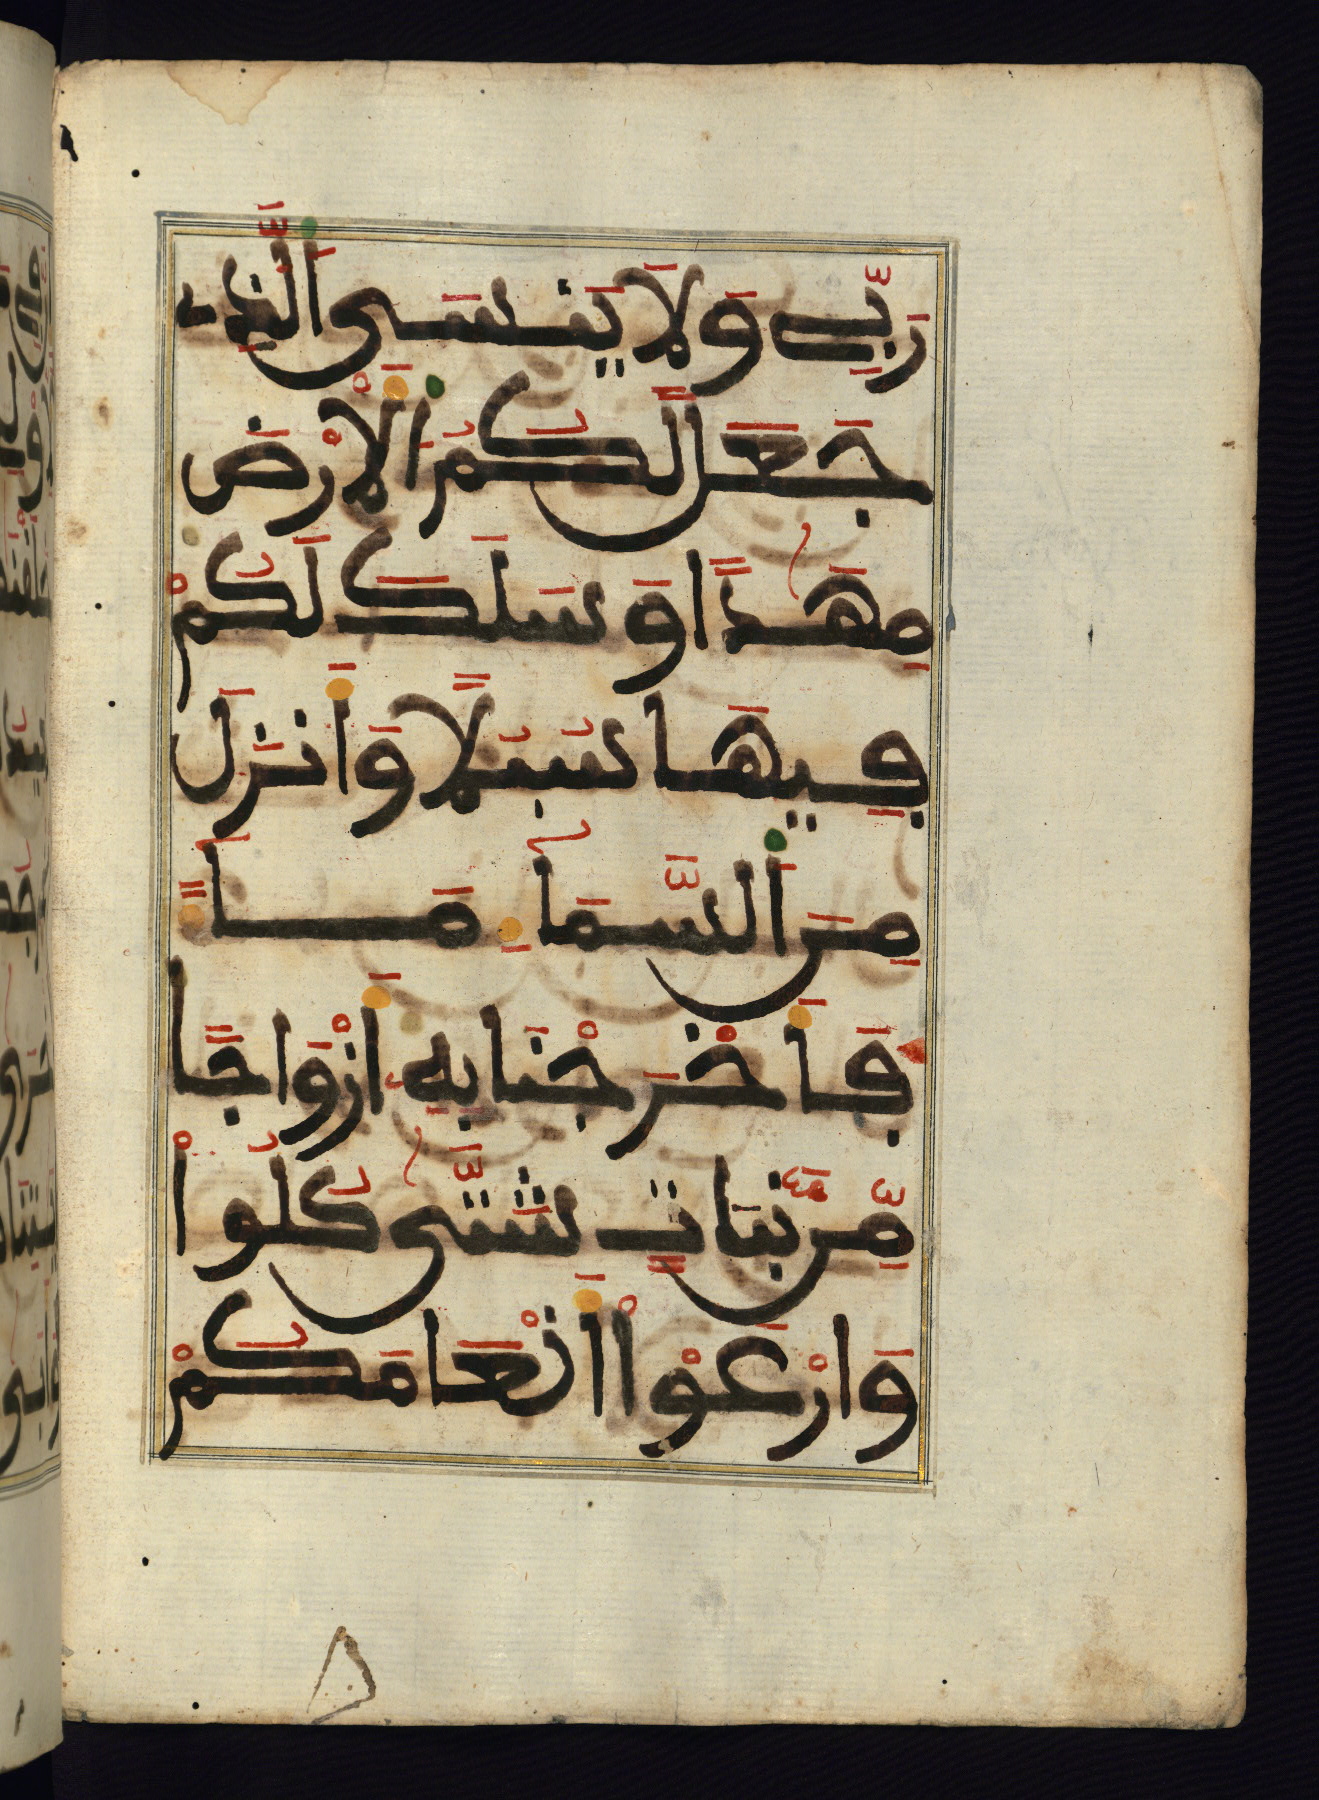 رَبِّے وَلَا يَنسَى اَلَّذِے
جَعَلَ لَكُمُ اُلَارْضَ
مِهَٰدًا وَسَلَكَ لَكُمْ
فِيهَا سُبُلًا وَأَنزَلَ
مِنَ اَلسَّمَآءِ مَآءً
فَأَخْرَجْنَا بِهِۦ أَزْوَاجًا
مِّن نَّبَاتٍ شَتَّىٰ كُلُواْ
وَارْعَوْاْ أَنْعَامَكُمْ